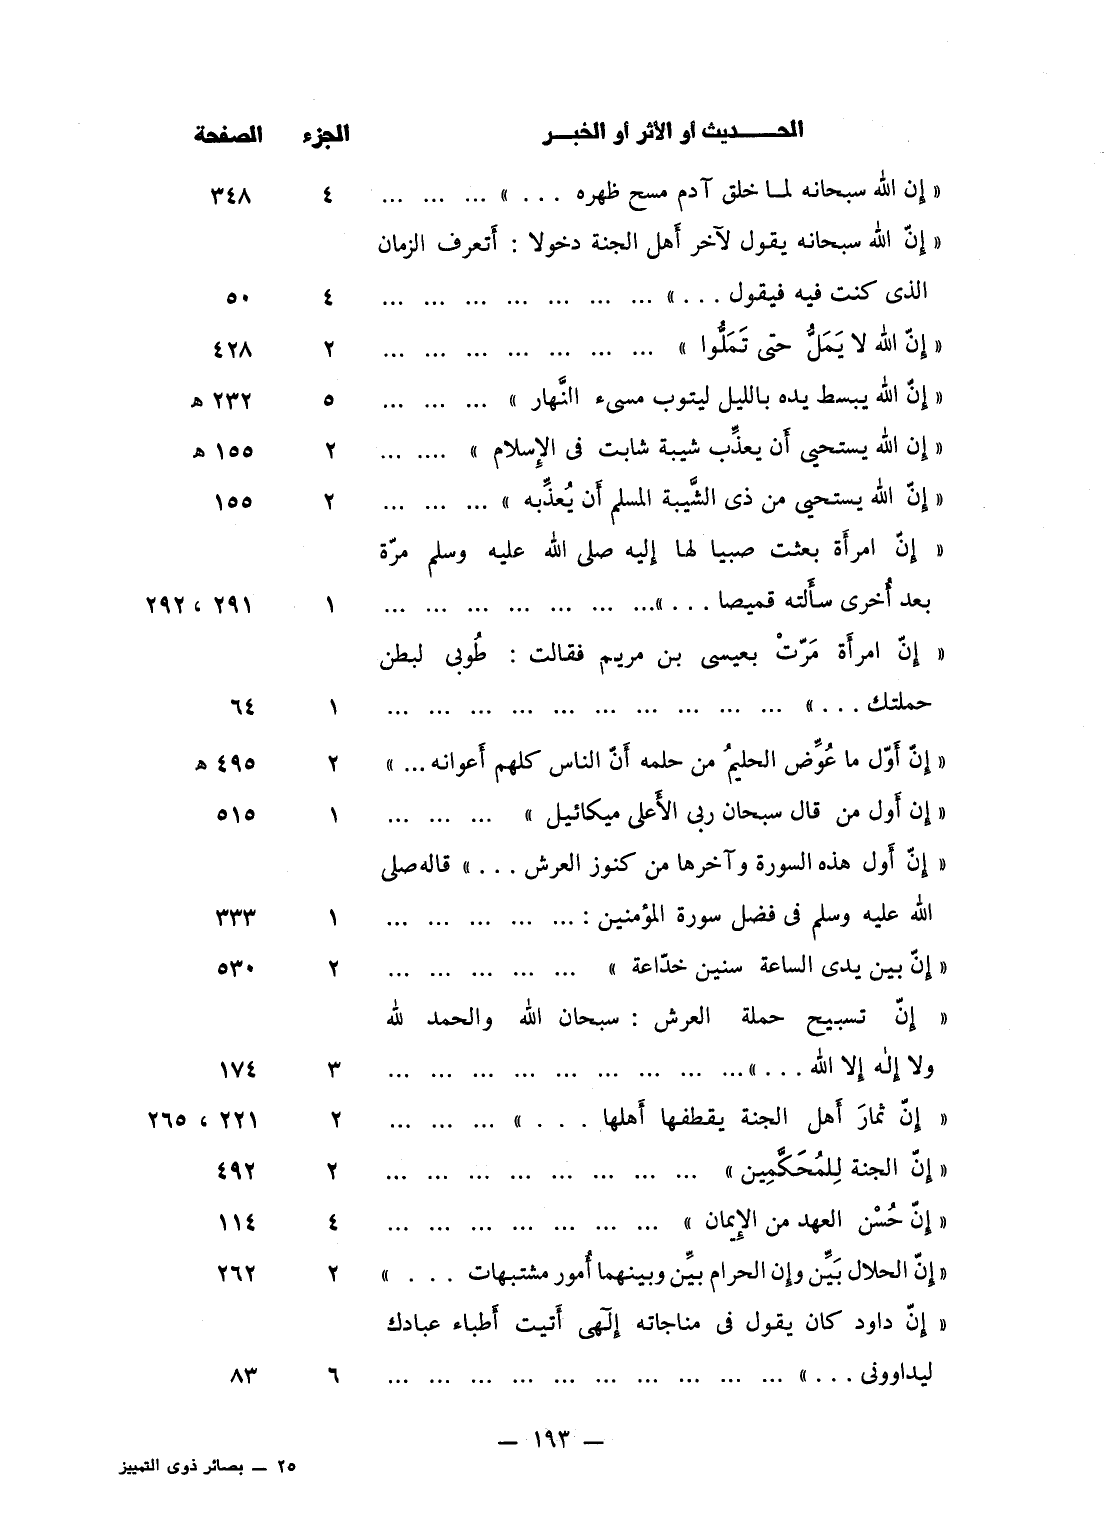 الحـــديث أو الأثر أو الخبــر الجزء الصفحة
« إن الله سبحانه لمـا خلق آدم مسح ظهره . . . » ... ... ... ٤ ٣٤٨
« إنّ الله سبحانه يقول لآخر أَهل الجنة دخولا : أَتعرف الزمان
الذى كنت فيه فيقول . . . » ... ... ... ... ... ... ... ٤ ٥٠
« إنّ الله لا يَمَلُّ حتى تَمَلُّوا » ... ... ... ... ... ... ... ٢ ٤٢٨
« إنّ الله يبسط يده بالليل ليتوب مسىء النَّهار » ... ... ... ٥ ٢٣٢ هـ
« إن الله يستحيى أَن يعذِّب شيبة شابت فى الإِسلام » .... ... ٢ ١٥٥ هـ
« إنّ الله يستحيى من ذى الشَّيبة المسلم أَن يُعذِّبه » ... ... ... ٢ ١٥٥
« إنّ امرأَة بعثت صبيا لها إليه صلى الله عليه وسلم مرّة
بعد أُخرى سأَلته قميصا . . . »... ... ... ... ... ... ... ١ ٢٩١ ، ٢٩٢
« إنّ امرأَة مَرّتْ بعيسى بن مريم فقالت : طُوبى لبطن
حملتك . . . » ... ... ... ... ... ... ... ... ... ... ١ ٦٤
« إنّ أَوّل ما عُوِّض الحليمُ من حلمه أَنّ الناس كلهم أَعوانه ... » ٢ ٤٩٥ هـ
« إن أَول من قال سبحان ربى الأَعلى ميكائيل » ... ... ... ١ ٥١٥
« إنّ أَول هذه السورة وآخرها من كنوز العرش . . . » قاله صلى
الله عليه وسلم فى فضل سورة المؤمنين : ... ... ... ... ... ١ ٣٣٣
« إنّ بين يدى الساعة سنين خدّاعة » ... ... ... ... ... ٢ ٥٣٠
« إنّ تسبيح حملة العرش : سبحان الله والحمد لله
ولا إلٰه إلا الله . . . »... ... ... ... ... ... ... ... ... ٣ ١٧٤
« إنّ ثمارَ أَهل الجنة يقطفها أَهلها . . . » ... ... ... ٢ ٢٢١ ، ٢٦٥
« إنّ الجنة لِلمُحَكَّمِين » ... ... ... ... ... ... ... ... ٢ ٤٩٢
« إنّ حُسْن العهد من الإِيمان » ... ... ... ... ... ... ... ٤ ١١٤
« إنّ الحلال بَيِّن وإن الحرام بيِّن وبينهما أُمور مشتبهات . . . » ٢ ٢٦٢
« إنّ داود كان يقول فى مناجاته إلٓهى أَتيت أَطباء عبادك
ليداوونى . . . » ... ... ... ... ... ... ... ... ... ... ٦ ٨٣
— ١٩٣ —
٢٥ — بصائر ذوى التمييز